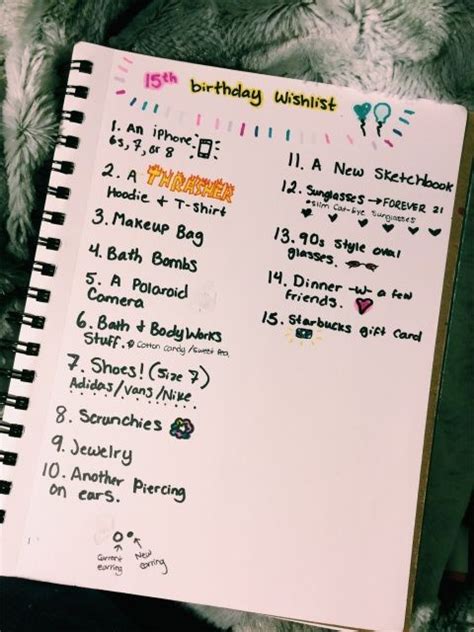 15th birthday Wishlist
1. An iphone
6s, 7, or 8
2. A THRASHER
Hoodie + T-Shirt
3. Makeup Bag
4. Bath Bombs
5. A Polaroid
Camera
6. Bath & BodyWorks
Stuff. Cotton candy/Sweet Pea
7. Shoes! (Size 7)
Adidas/Vans/Nike
8. Scrunchies
9. Jewelry
10. Another Piercing
on ears.
Current
earring
New
earring
11. A New Sketchbook
12. Sunglasses → FOREVER 21
*slim Cat-Eye Sunglasses
13. 90s Style oval
glasses.
14. Dinner -w- a few
friends.
15. Starbucks gift Card